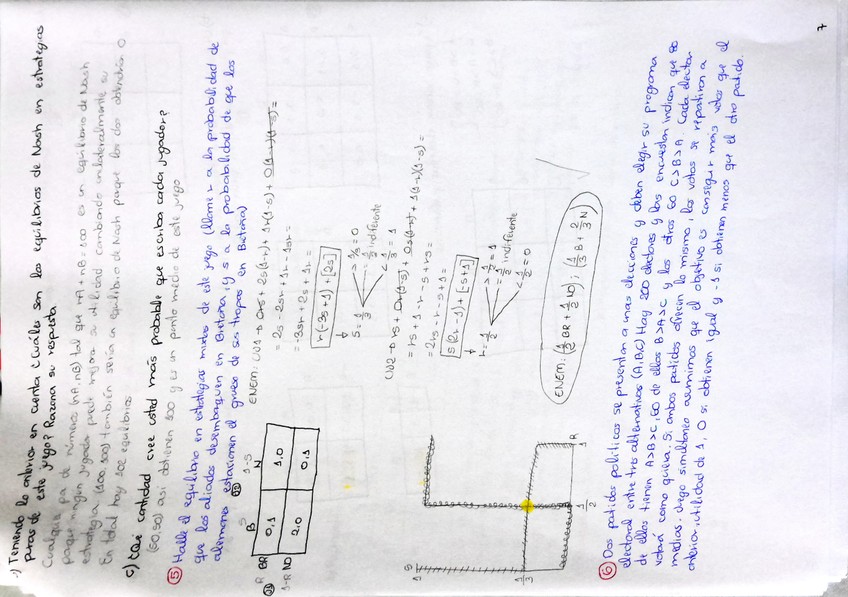 b) Teniendo lo anterior en cuenta ¿Cuáles son los equilibrios de Nash en estrategias
puras de este juego? Razona su respuesta
Cualquier par de números (nA, nB) tal que nA + nB = 100 es un equilibrio de Nash
porque ningún jugador puede mejorar su utilidad cambiando unilateralmente su
estrategia (100, 100) también sería un equilibrio de Nash porque los dos obtendrían 0
En total hay 102 equilibrios
c) ¿Qué cantidad cree usted más probable que escriba cada jugador?
(50,50) así obtienen 100 y es un punto medio de este juego
5 Halle el equilibrio en estrategias mixtas de este juego (llamar r a la probabilidad de
que los aliados desembarquen en Bretaña, y s a la probabilidad de que los
alemanes estacionen el grueso de sus tropas en Bretaña)
S 1-S
B N
R BR 0,1 1,0
1-R NO 2,0 0,1
ENEM: UJ1 → 0rs + 2s(1-r) + 1r(1-s) + 0(1-r)(1-s) =
= 2s - 2sr + 1r - 1sr =
= -3sr + 2s + 1r =
r(-3s+1) + [2s]
s = 1/3
> 1/3 = 0
= 1/3 indiferente
< 1/3 = 1
UJ2 → rs + 0r(1-s) + 0s(1-r) + 1(1-r)(1-s) =
= rs + 1 - r - s + rs =
= 2rs - r - s + 1 =
s(2r-1) + [-s+1]
r = 1/2
> 1/2 = 1
= 1/2 indiferente
< 1/2 = 0
ENEM: (1/2 BR + 1/2 NO); (1/3 B + 2/3 N)
S
1
1/3
1/2
1
R
6 Dos partidos políticos se presentan a unas elecciones y deben elegir su programa
electoral entre tres alternativas (A,B,C) Hay 200 electores y las encuestas indican que 80
de ellos tienen A>B>C, 60 de ellos B>A>C y los otros 60 C>B>A. Cada elector
votará como quiera. Si ambos partidos ofrecen lo mismo, los votos se repartirán a
medias. Juego simultáneo asumimos que el objetivo es conseguir más votos que el
anterior, utilidad de 1, 0 si obtienen igual y -1 si obtienen menos que el otro partido.
7